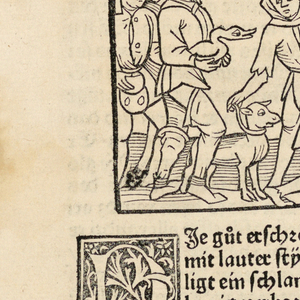 Je gůt erschro
mit lauter sty
ligt ein schlan